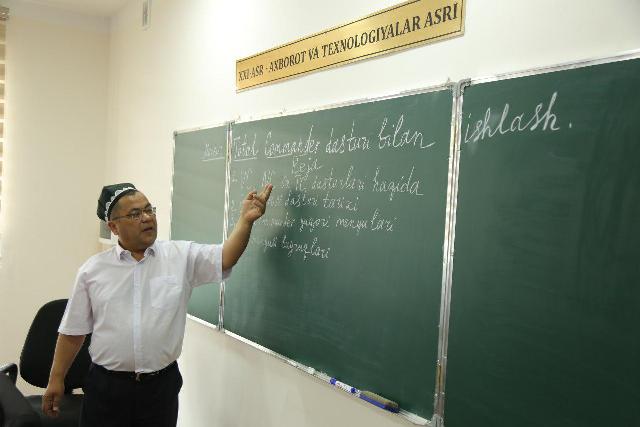 XXI-ASR - AXBOROT VA TEXNOLOGIYALAR ASRI
Mavzu: Total Commander dasturi bilan ishlash.
Reja
dasturlari haqida
dasturi tarixi
Commander yuqori menyulari
buyruqlari